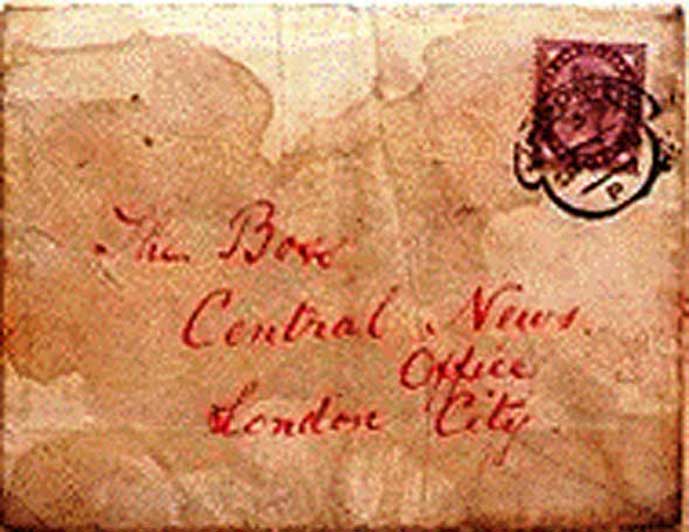 The Boss
Central News
Office
London City.